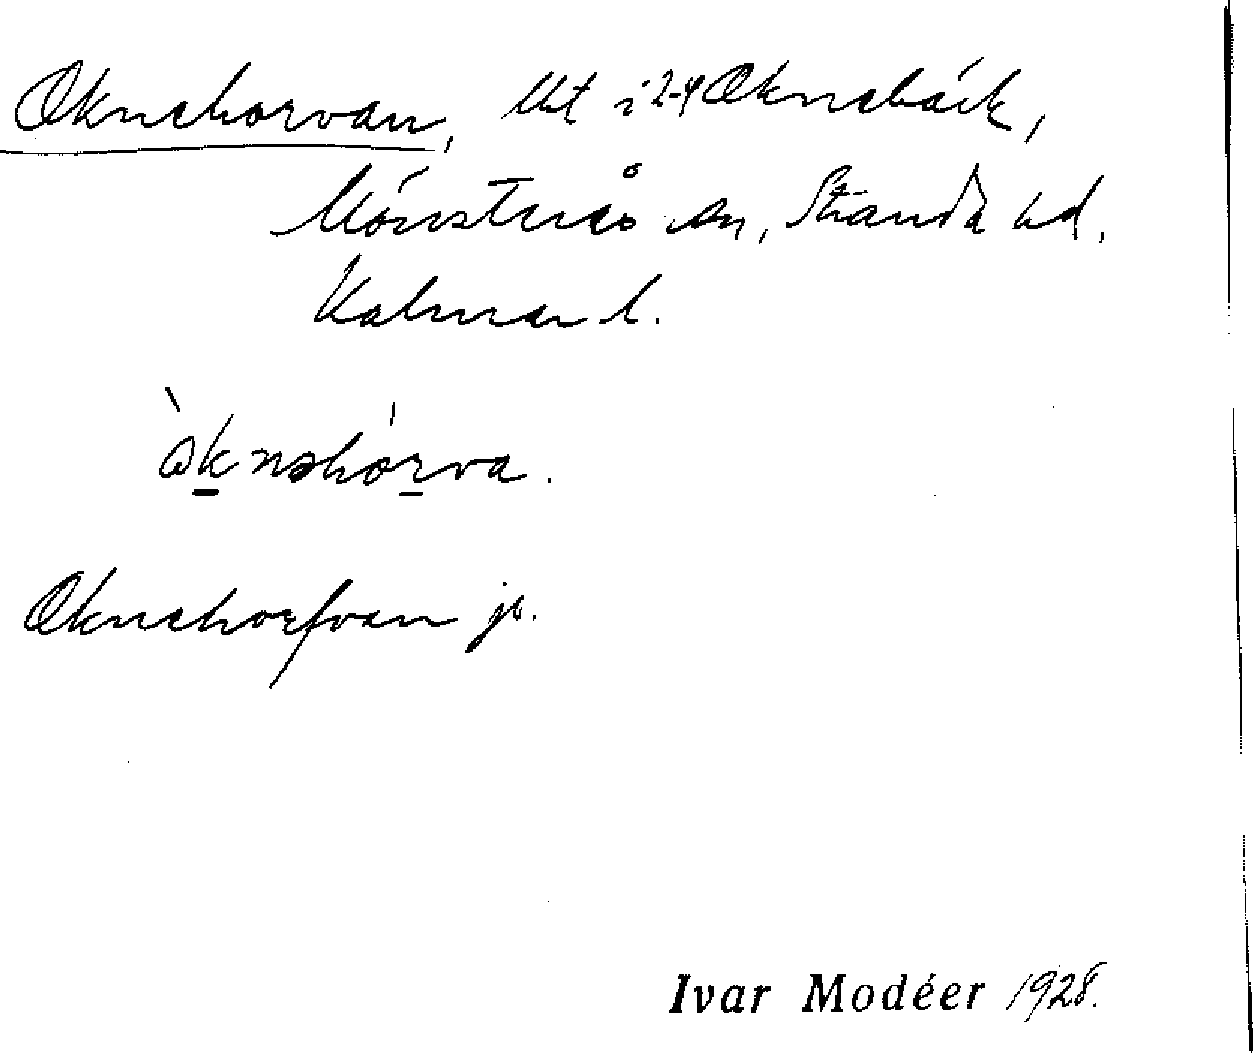 Oknehorvan, Ut i 2-4 Oknebäck,
Mönsterås sn, Stranda hd,
Kalmar l.
òknəhórva.
Oknehorfvan jb.
Ivar Modéer 1928.